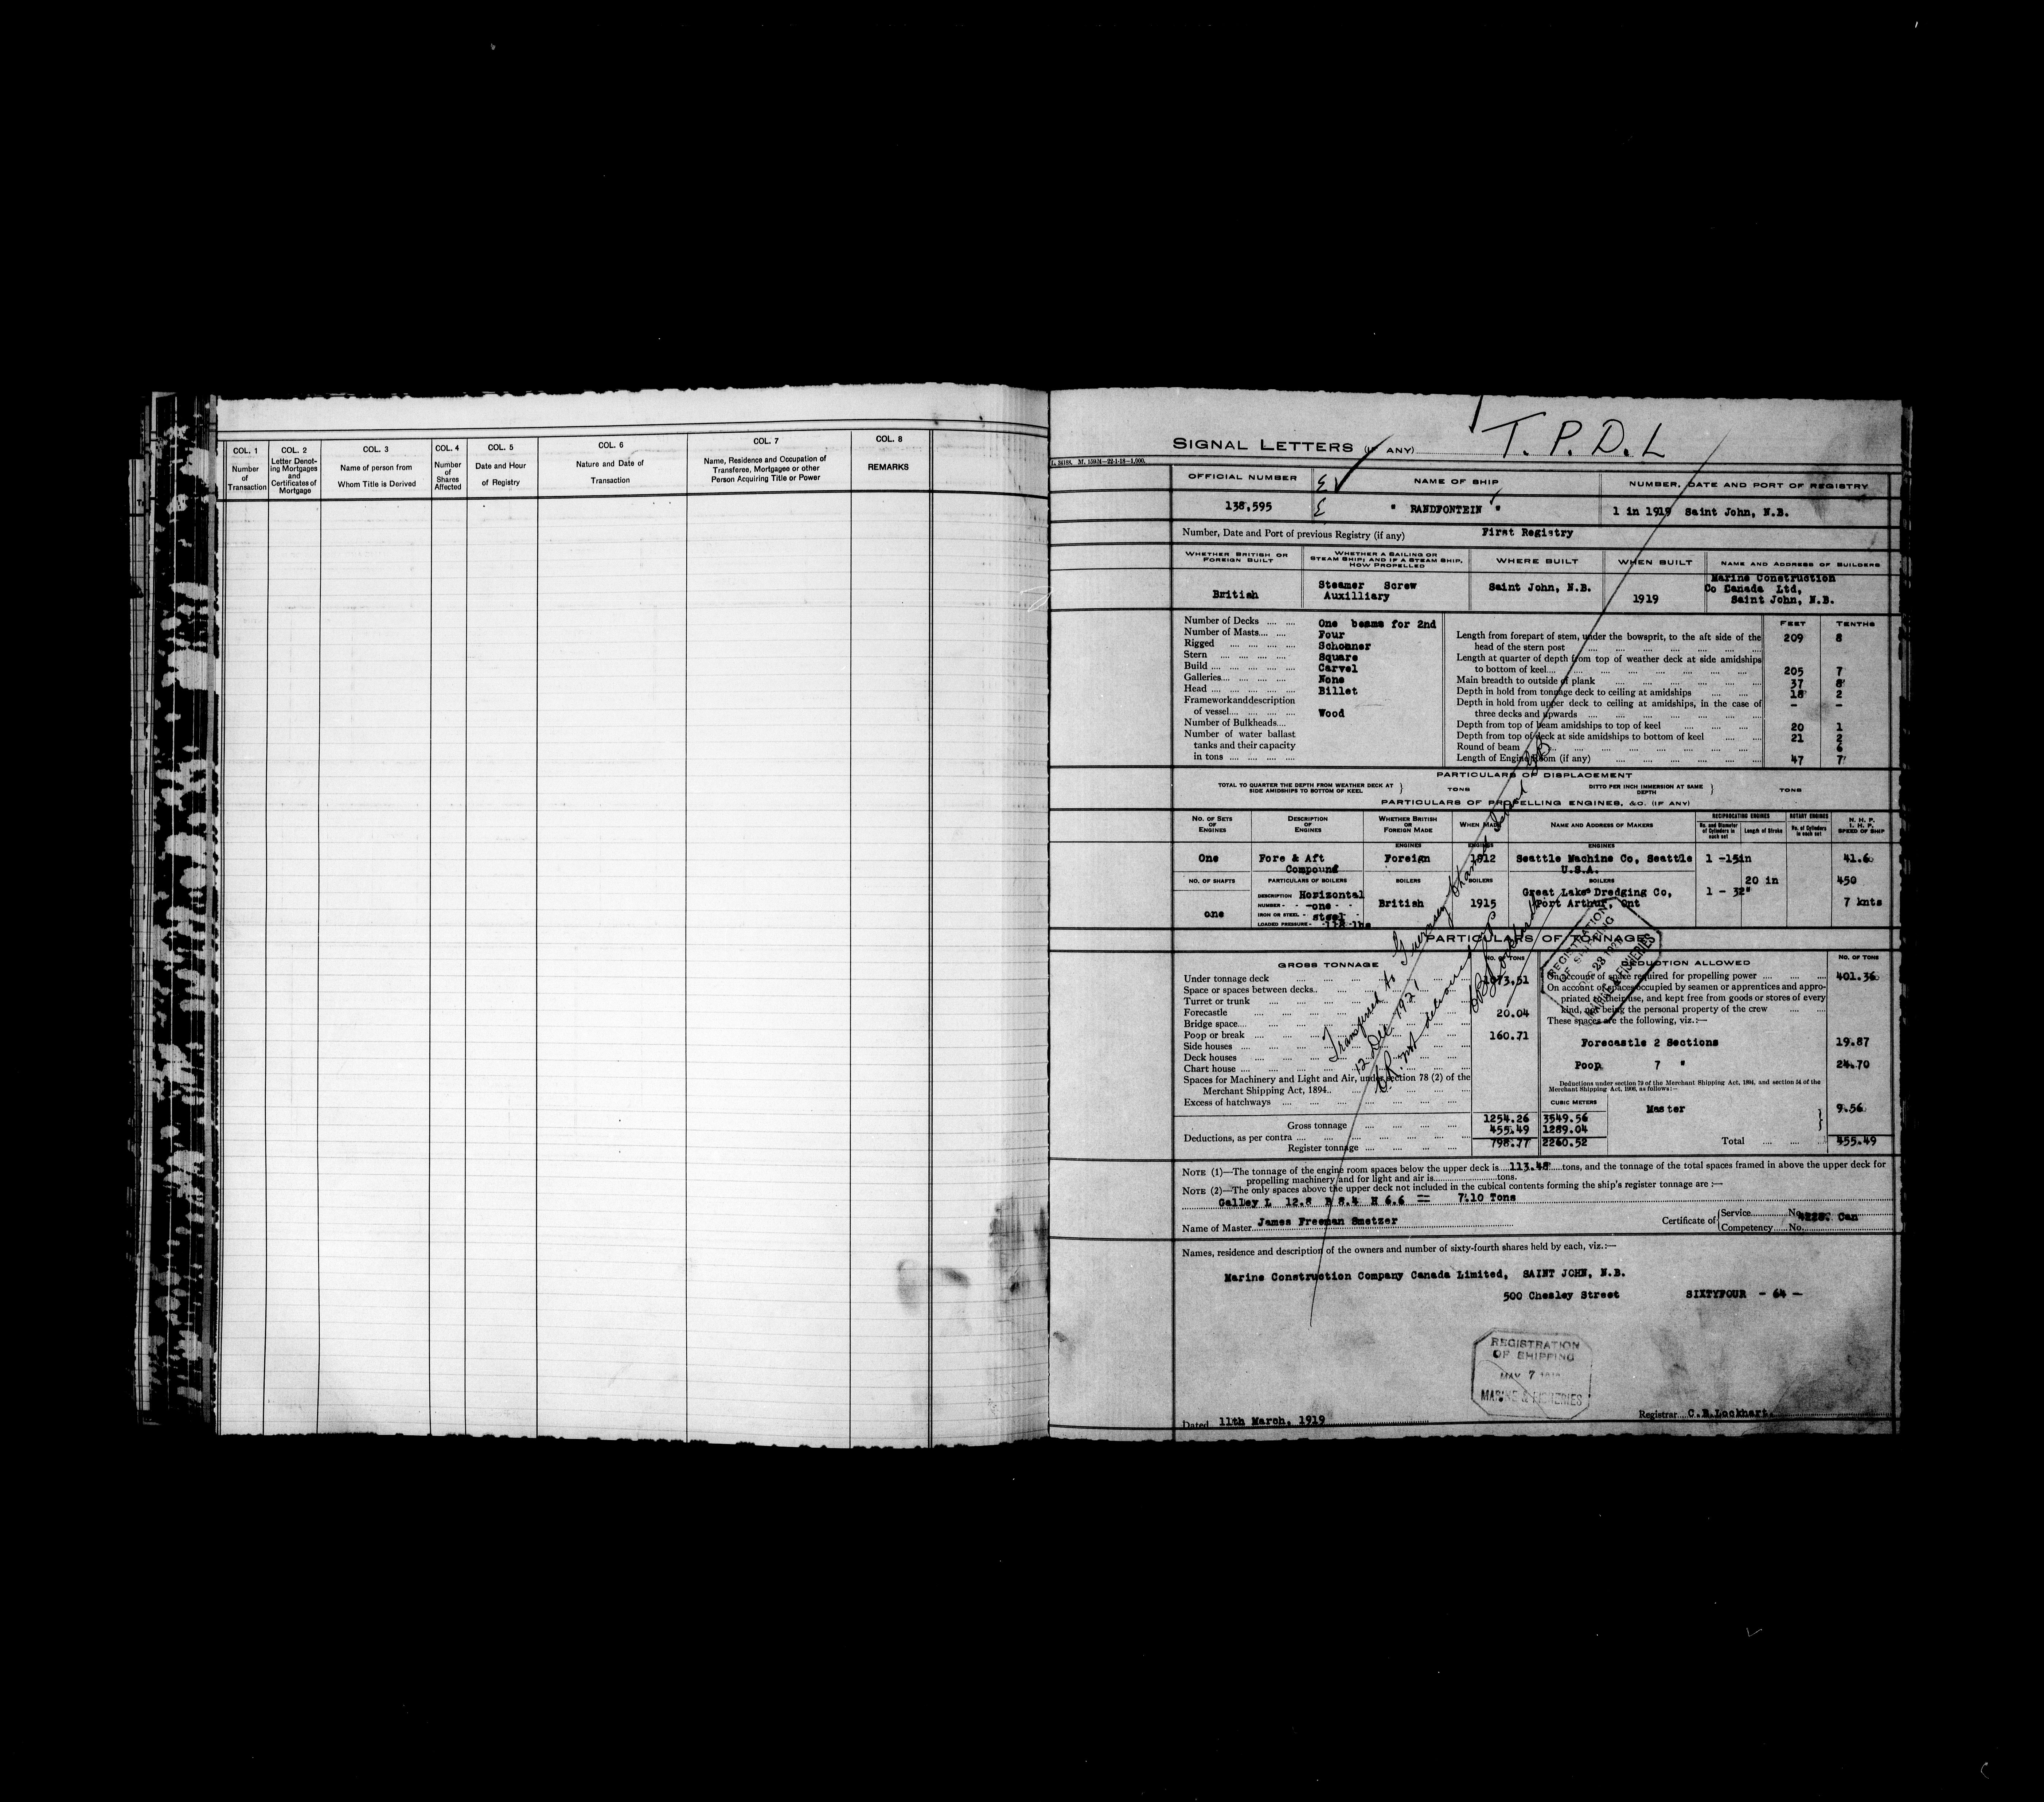 COL. 1
Number
of
Transaction
COL. 2
Letter Denot-
ing Mortgages
and
Certificates of
Mortgage
COL. 3
Name of person from
Whom Title is Derived
COL. 4
Number
of
Shares
Affected
COL. 5
Date and Hour
of Registry
COL. 6
Nature and Date of
Transaction
COL. 7
Name, Residence and Occupation of
Transferee, Mortgagee or other
Person Acquiring Title or Power
COL. 8
REMARKS
SIGNAL LETTERS (IF ANY) T.P.D.L
OFFICIAL NUMBER NAME OF SHIP NUMBER, DATE AND PORT OF REGISTRY
138,595 " RANDFONTEIN " 1 in 1919 Saint John, N.B.
Number, Date and Port of previous Registry (if any) First Registry
WHETHER BRITISH OR
FOREIGN BUILT
WHETHER A SAILING OR
STEAM SHIP; AND IF A STEAM SHIP,
HOW PROPELLED
WHERE BUILT WHEN BUILT NAME AND ADDRESS OF BUILDERS
British
Steamer Screw
Auxilliary
Saint John, N.B.
1919
Marine Construction
Co Canada Ltd,
Saint John, N.B.
Number of Decks One beams for 2nd
Number of Masts Four
Rigged Schooner
Stern Square
Build Carvel
Galleries None
Head Billet
Framework and description
of vessel Wood
Number of Bulkheads
Number of water ballast
tanks and their capacity
in tons
FEET TENTHS
Length from forepart of stem, under the bowsprit, to the aft side of the
head of the stern post 209 8
Length at quarter of depth from top of weather deck at side amidships
to bottom of keel 205 7
Main breadth to outside of plank 37 8
Depth in hold from tonnage deck to ceiling at amidships 18 2
Depth in hold from upper deck to ceiling at amidships, in the case of
three decks and upwards - -
Depth from top of beam amidships to top of keel 20 1
Depth from top of deck at side amidships to bottom of keel 21 2
Round of beam 6
Length of Engine Room (if any) 47 7
PARTICULARS OF DISPLACEMENT
TOTAL TO QUARTER THE DEPTH FROM WEATHER DECK AT
SIDE AMIDSHIPS TO BOTTOM OF KEEL
TONS
DITTO PER INCH IMMERSION AT SAME
DEPTH
TONS
PARTICULARS OF PROPELLING ENGINES, &C. (IF ANY)
NO. OF SETS
OF
ENGINES
DESCRIPTION
OF
ENGINES
WHETHER BRITISH
OR
FOREIGN MADE
WHEN MADE
NAME AND ADDRESS OF MAKERS
RECIPROCATING ENGINES
No. and Diameter
of Cylinders in
each set
Length of Stroke
ROTARY ENGINES
No. of Cylinders
in each set
N. H. P.
I. H. P.
SPEED OF SHIP
ENGINES ENGINES ENGINES
One Fore & Aft
Compound
Foreign 1912 Seattle Machine Co, Seattle
U.S.A.
1 -15in 41.6
NO. OF SHAFTS PARTICULARS OF BOILERS BOILERS BOILERS BOILERS
20 in 450
one
DESCRIPTION Horizontal
NUMBER -one-
IRON OR STEEL steel
LOADED PRESSURE
British 1915 Great Lake Dredging Co,
Port Arthur, Ont
1 - 32" 7 knts
PARTICULARS OF TONNAGE
GROSS TONNAGE NO. OF TONS
Under tonnage deck 1073.51
Space or spaces between decks
Turret or trunk
Forecastle 20.04
Bridge space
Poop or break 160.71
Side houses
Deck houses
Chart house
Spaces for Machinery and Light and Air, under section 78 (2) of the
Merchant Shipping Act, 1894
Excess of hatchways
CUBIC METERS
Gross tonnage 1254.26 3549.56
Deductions, as per contra 455.49 1289.04
Register tonnage 798.77 2260.52
DEDUCTION ALLOWED NO. OF TONS
On account of space required for propelling power 401.36
On account of spaces occupied by seamen or apprentices and appro-
priated to their use, and kept free from goods or stores of every
kind, not being the personal property of the crew
These spaces are the following, viz.:—
Forecastle 2 Sections 19.87
Poop 7 " 24.70
Deductions under section 79 of the Merchant Shipping Act, 1894, and section 54 of the
Merchant Shipping Act, 1906, as follows:—
Master 9.56
Total 455.49
Transferred to Guernsey Channel Island
12 Dec 1921
C.R. not delivered up
C B Lockhart
REGISTRATION
OF SHIPPING
MARINE & FISHERIES
NOTE (1)—The tonnage of the engine room spaces below the upper deck is 113.48 tons, and the tonnage of the total spaces framed in above the upper deck for
propelling machinery and for light and air is tons.
NOTE (2)—The only spaces above the upper deck not included in the cubical contents forming the ship's register tonnage are :—
Galley L 12.8 B 8.4 H 6.6 = 7.10 Tons
Name of Master James Freeman Smetzer Certificate of Service No. Can
Competency No.
Names, residence and description of the owners and number of sixty-fourth shares held by each, viz.:—
Marine Construction Company Canada Limited, SAINT JOHN, N.B.
500 Chesley Street SIXTYFOUR - 64 -
REGISTRATION
OF SHIPPING
MAY 7 1919
MARINE & FISHERIES
Dated 11th March, 1919 Registrar C.B.Lockhart.